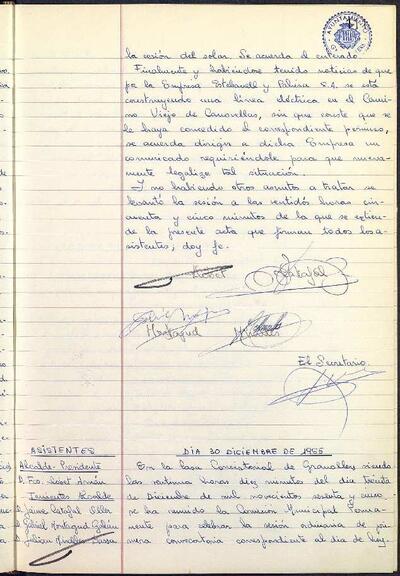 la cesión del solar. Se acuerda el enterado.
Finalmente y habiéndose tenido noticias de que
por la Empresa Estabanell y Pahisa S.A. se está
construyendo una línea eléctrica en el Cami-
no Viejo de Canovellas, sin que conste que se
le haya concedido el correspondiente permiso,
se acuerda dirigir a dicha Empresa un
comunicado requiriéndole para que nueva-
mente legalice tal situación.
Y no habiendo otros asuntos a tratar se
levantó la sesión a las ventidós horas cin-
cuenta y cinco minutos de la que se extien-
de la presente acta que firman todos los a-
sistentes, doy fe.
El Secretario
ASISTENTES
Alcalde-Presidente
D. Fco. Llobet Arnán
Tenientes Alcalde
D. Jaime Catafal Oller
D. Gabriel Montagud
D. Julián
DÍA 30 DICIEMBRE DE 1965
En la Casa Consistorial de Granollers siendo
las ventiuna horas diez minutos del día treinta
de Diciembre de mil novecientos sesenta y cinco
se ha reunido la Comisión Municipal Perma-
nente para celebrar la sesión ordinaria de pri-
mera convocatoria correspondiente al día de hoy